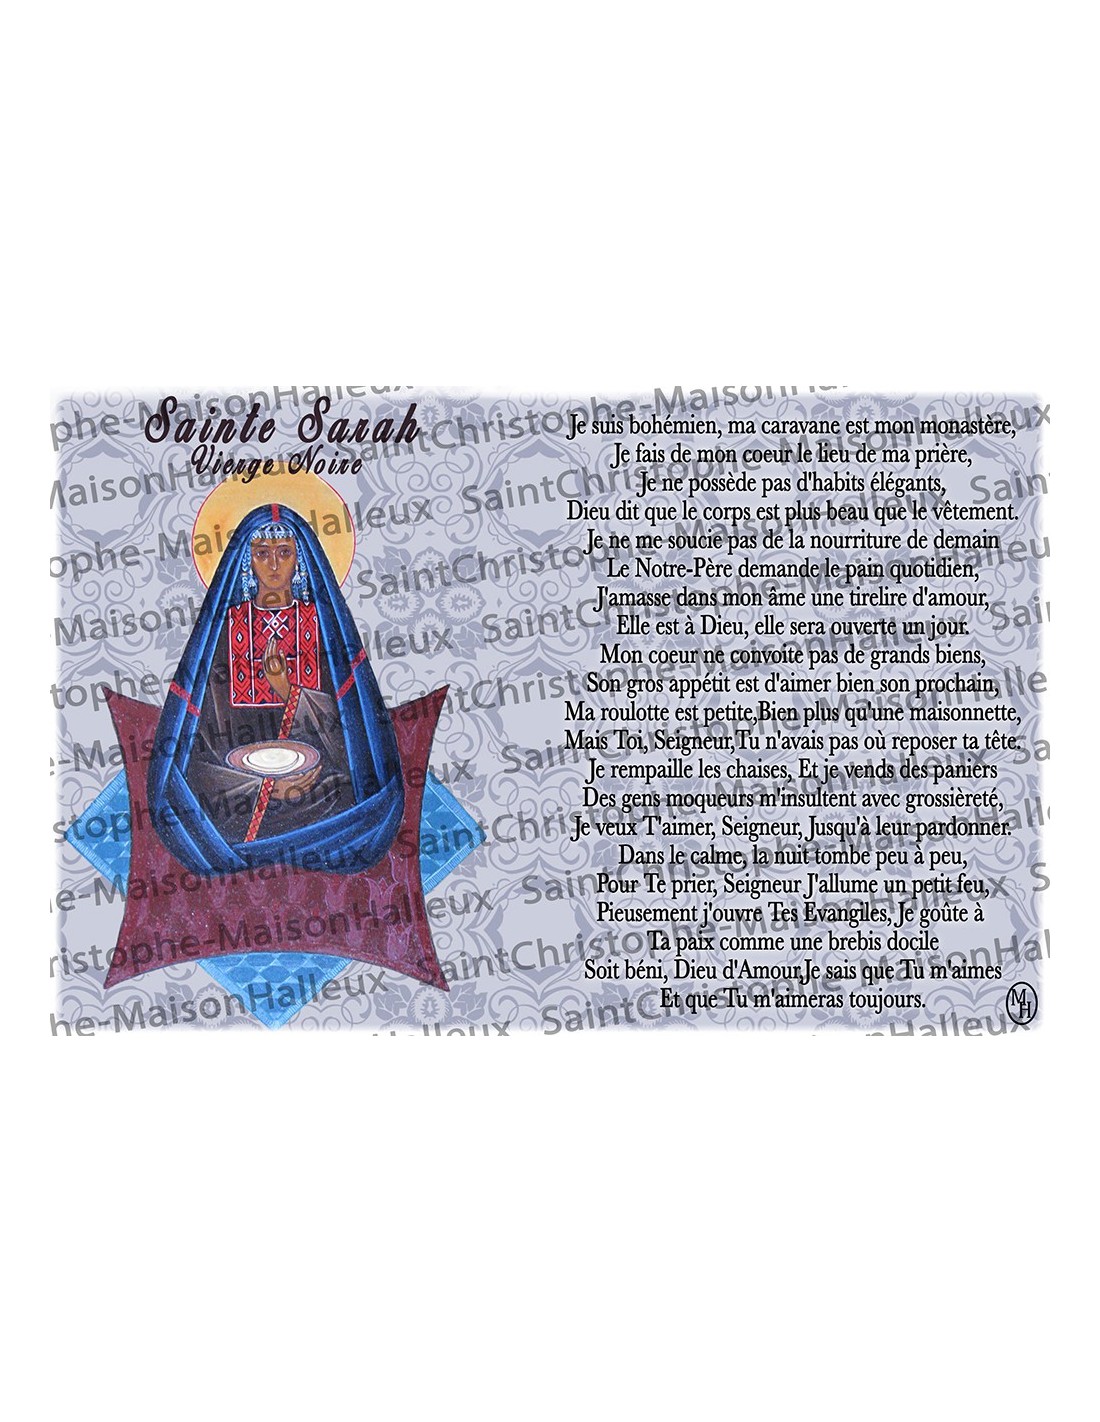 Sainte Sarah
Vierge Noire
Je suis bohémien, ma caravane est mon monastère,
Je fais de mon coeur le lieu de ma prière,
Je ne possède pas d'habits élégants,
Dieu dit que le corps est plus beau que le vêtement.
Je ne me soucie pas de la nourriture de demain
Le Notre-Père demande le pain quotidien,
J'amasse dans mon âme une tirelire d'amour,
Elle est à Dieu, elle sera ouverte un jour.
Mon coeur ne convoite pas de grands biens,
Son gros appétit est d'aimer bien son prochain,
Ma roulotte est petite,Bien plus qu'une maisonnette,
Mais Toi, Seigneur,Tu n'avais pas où reposer ta tête.
Je rempaille les chaises, Et je vends des paniers
Des gens moqueurs m'insultent avec grossièreté,
Je veux T'aimer, Seigneur, Jusqu'à leur pardonner.
Dans le calme, la nuit tombe peu à peu,
Pour Te prier, Seigneur J'allume un petit feu,
Pieusement j'ouvre Tes Evangiles, Je goûte à
Ta paix comme une brebis docile
Soit béni, Dieu d'Amour,Je sais que Tu m'aimes
Et que Tu m'aimeras toujours.
MH
SaintChristophe-MaisonHalleux